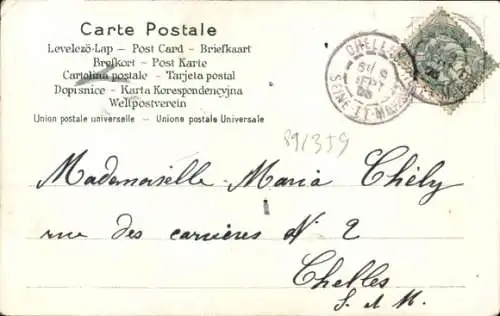 Carte Postale
Levelező-Lap — Post Card — Briefkaart
Brefkort — Post Karte
Cartolina postale — Tarjeta postal
Dopisnice — Karta Korespondencyjna
Weltpostverein
Union postale universelle — Unione postale Universale
CHELLES
SEINE-ET-MARNE
891359
Mademoiselle Maria Chély
rue des carrières N 2
Chelles
S. & M.